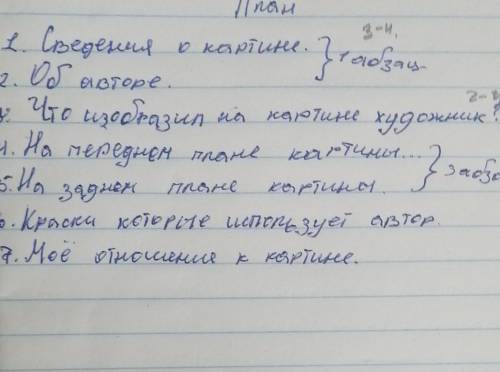 План
1. Сведения о картине. } 1 абзац 3-4.
2. Об авторе.
Что изобразил на картине художник?
4. На переднем плане картины...
5. На заднем плане картины.
6. Краски которые использует автор.
7. Моё отношение к картине.